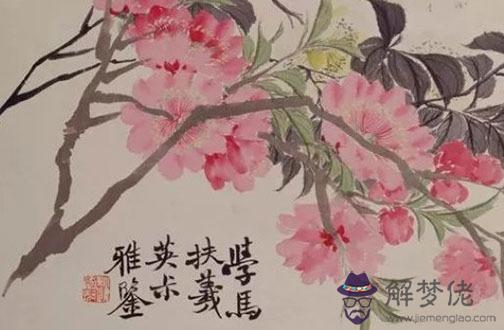 學馬
扶義
英卡
雅鑒
解梦佬
www.jiemenglao.com